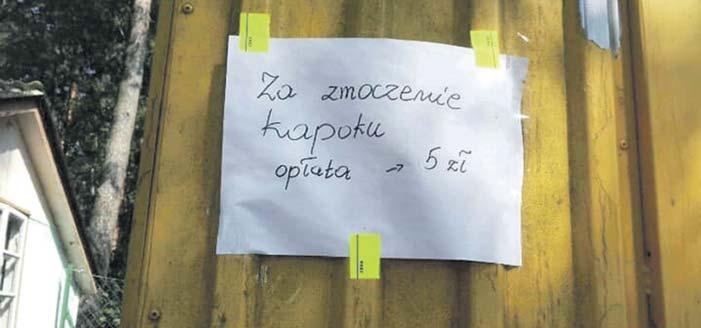 Za zmoczenie
kapoku
opłata → 5 zł